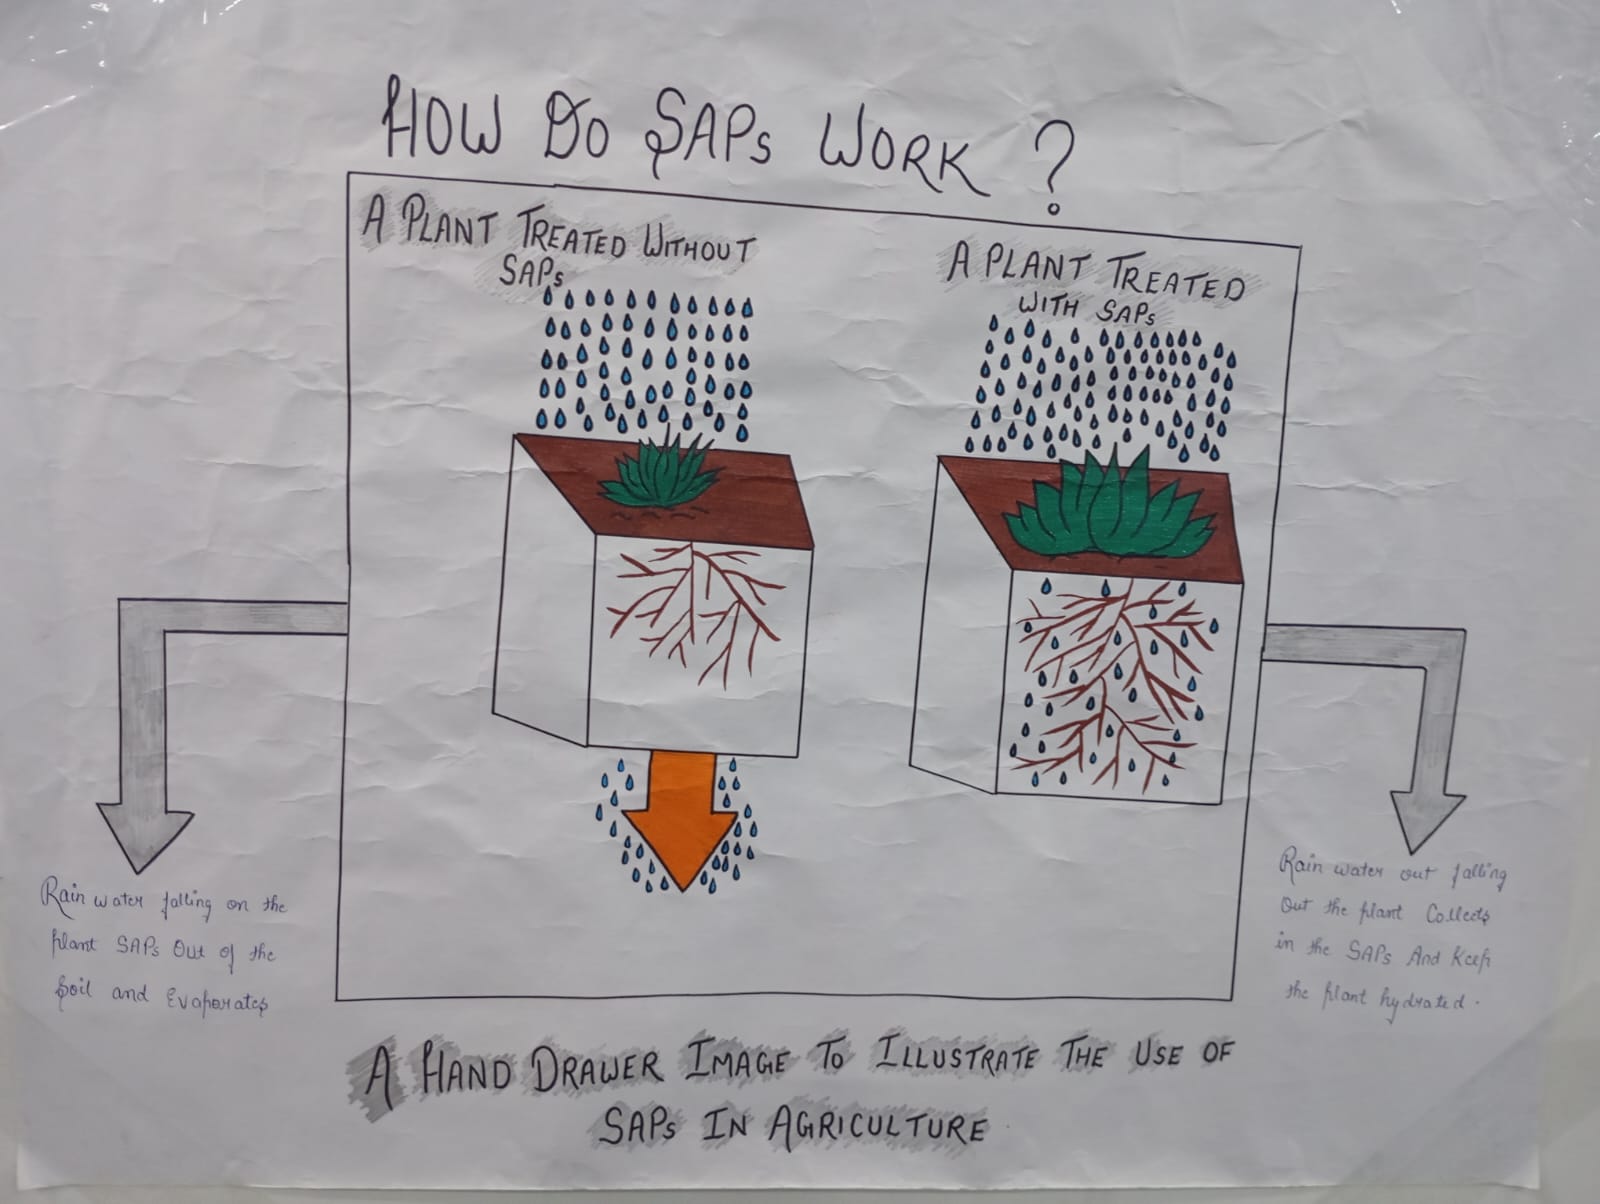 HOW DO SAPs WORK ?
A PLANT TREATED WITHOUT
SAPs
A PLANT TREATED
WITH SAPs
Rain water falling on the
plant SAPs Out of the
Soil and Evaporates
Rain water out falling
Out the plant Collects
in the SAPs And Keep
the plant hydrated.
A HAND DRAWER IMAGE TO ILLUSTRATE THE USE OF
SAPs IN AGRICULTURE